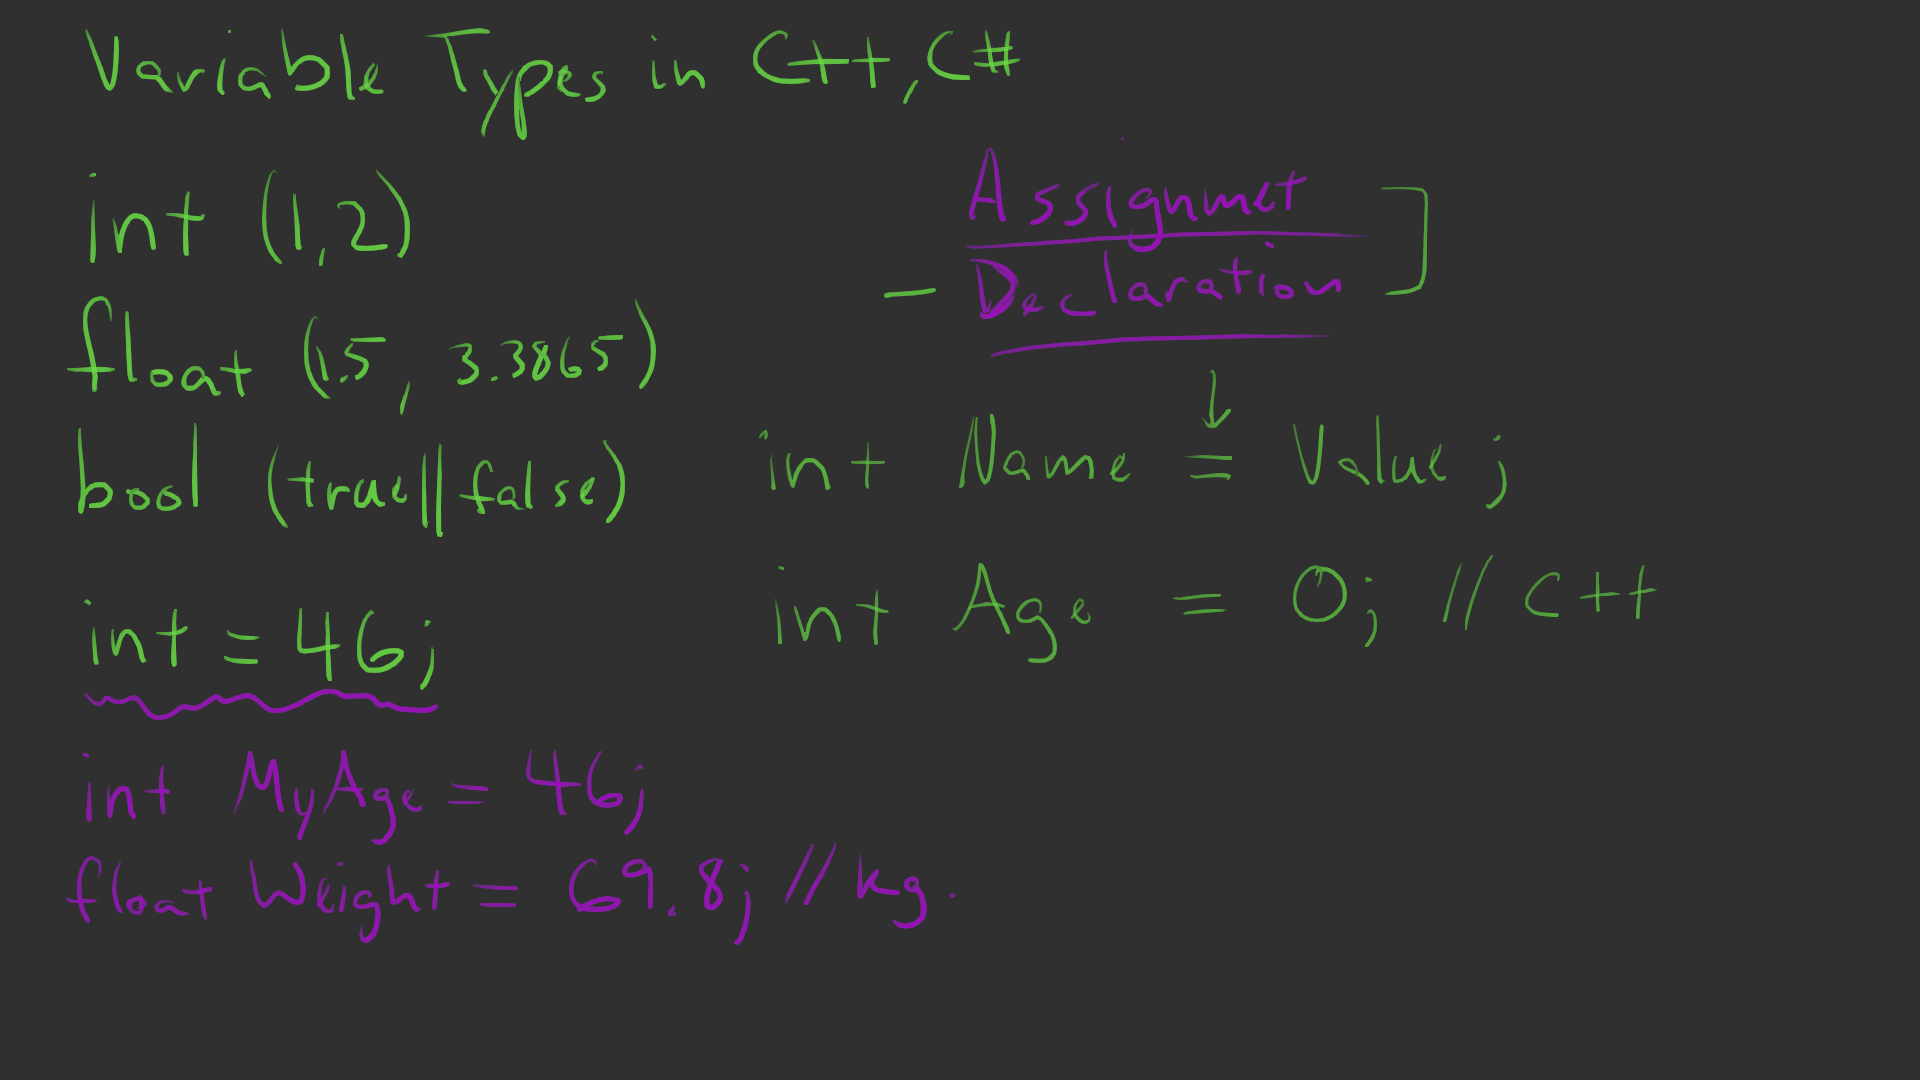 Variable Types in C++, C#
int (1,2)
float (1.5, 3.3865)
bool (true||false)
int = 46;
int MyAge = 46;
float Weight = 69.8; // kg.
Assignmet
- Declaration
int Name = Value;
int Age = 0; // C++